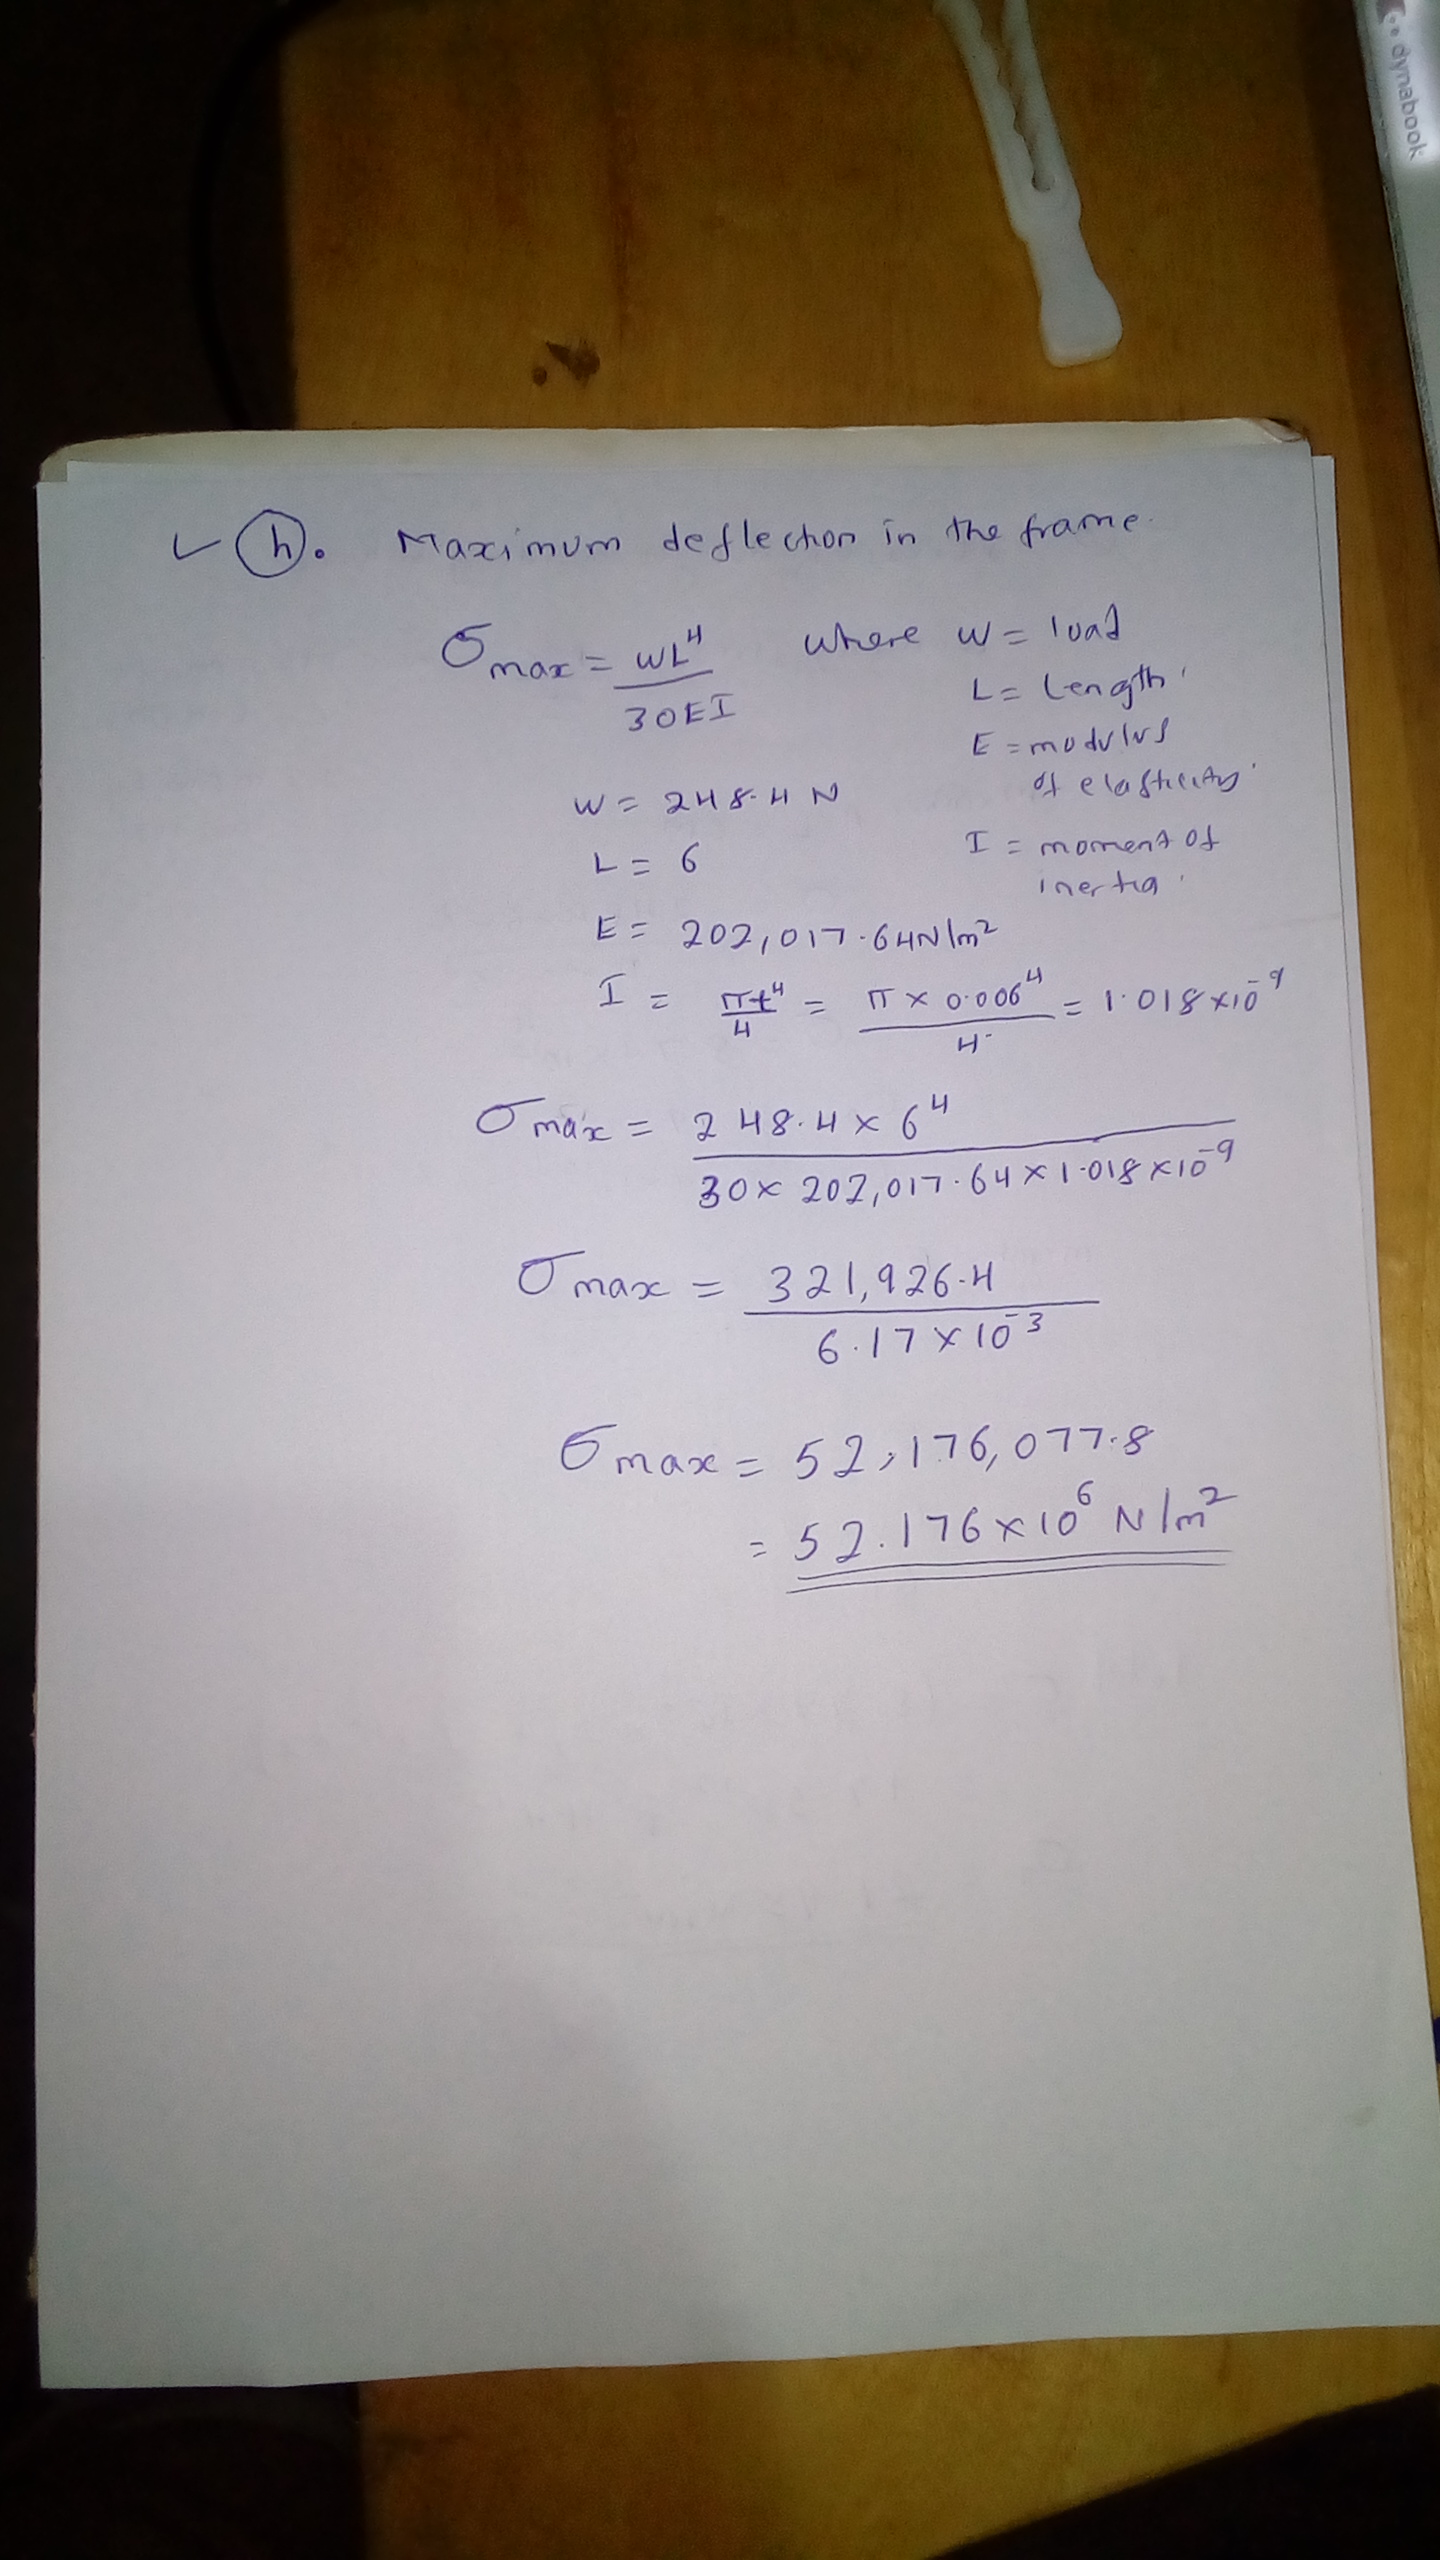 dynabook
✓ (h). Maximum deflection in the frame.
σmax = WL⁴ / 30EI where W = load
L = Length
E = modulus of elasticity
I = moment of inertia
W = 248.4 N
L = 6
E = 202,017.64N/m²
I = πt⁴/4 = π × 0.006⁴ / 4 = 1.018 × 10⁻⁹
σmax = 248.4 × 6⁴ / 30 × 202,017.64 × 1.018 × 10⁻⁹
σmax = 321,926.4 / 6.17 × 10⁻³
σmax = 52,176,077.8
= 52.176 × 10⁶ N/m²